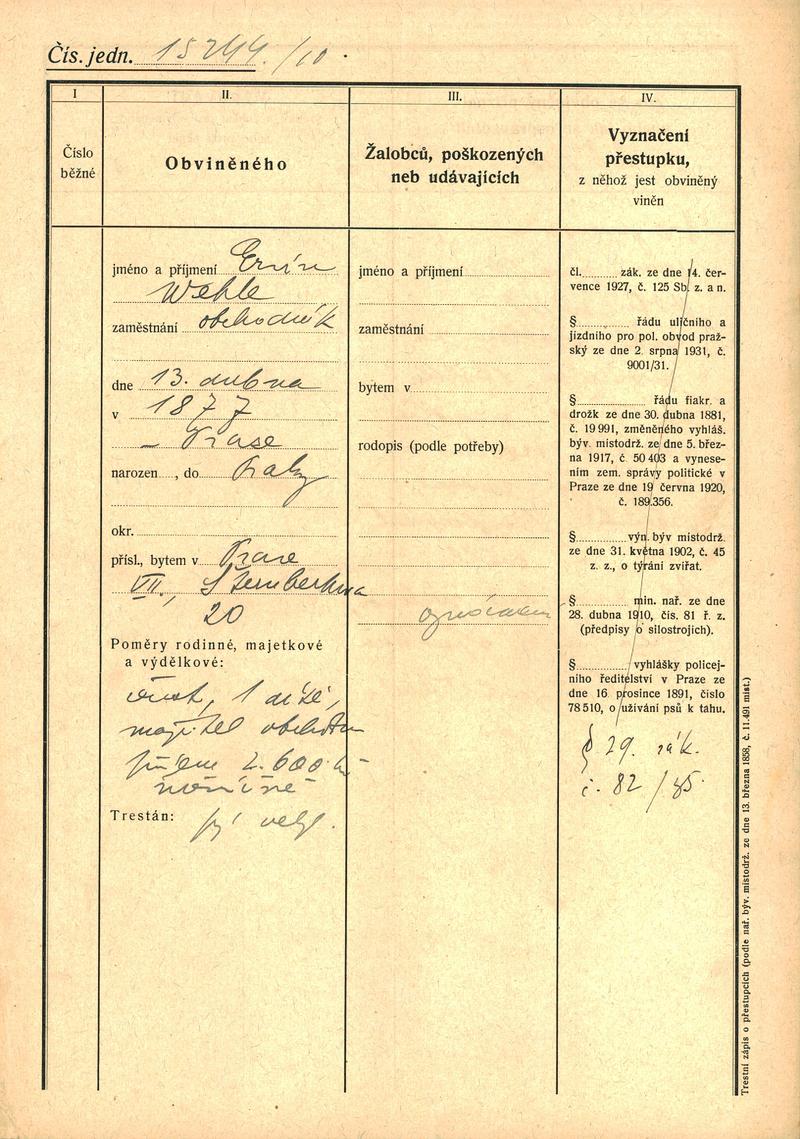 Čís. jedn. 15244/10
I
II.
III.
IV.
Číslo
běžné
Obviněného
Žalobců, poškozených
neb udávajících
Vyznačení
přestupku,
z něhož jest obviněný
viněn
jméno a příjmení Ervín
Wehle
zaměstnání obchodník
dne 13. dubna
v 1877
Praze
narozen, do Prahy
okr.
přísl., bytem v Praze
VII., Šternberkova
20
Poměry rodinné, majetkové
a výdělkové:
1 dítě,
majitel obchodu
příjem 2.600 K
měsíčně
Trestán:
jméno a příjmení
zaměstnání
bytem v
rodopis (podle potřeby)
čl. zák. ze dne 14. čer-
vence 1927, č. 125 Sb. z. a n.
§ řádu uličního a
jízdního pro pol. obvod praž-
ský ze dne 2. srpna 1931, č.
9001/31.
§ řádu fiakr. a
drožk ze dne 30. dubna 1881,
č. 19 991, změněného vyhláš.
býv. místodrž. ze dne 5. břez-
na 1917, č. 50 403 a vynese-
ním zem. správy politické v
Praze ze dne 19 června 1920,
č. 189.356.
§ výn. býv místodrž.
ze dne 31. května 1902, č. 45
z. z., o týrání zvířat.
§ min. nař. ze dne
28. dubna 1910, čís. 81 ř. z.
(předpisy o silostrojích).
§ vyhlášky policej-
ního ředitelství v Praze ze
dne 16 prosince 1891, číslo
78 510, o užívání psů k tahu.
§ 29. zák.
č. 82/85
Trestní zápis o přestupcích (podle nař. býv. místodrž. ze dne 13. března 1858, č. 11.491 míst.)